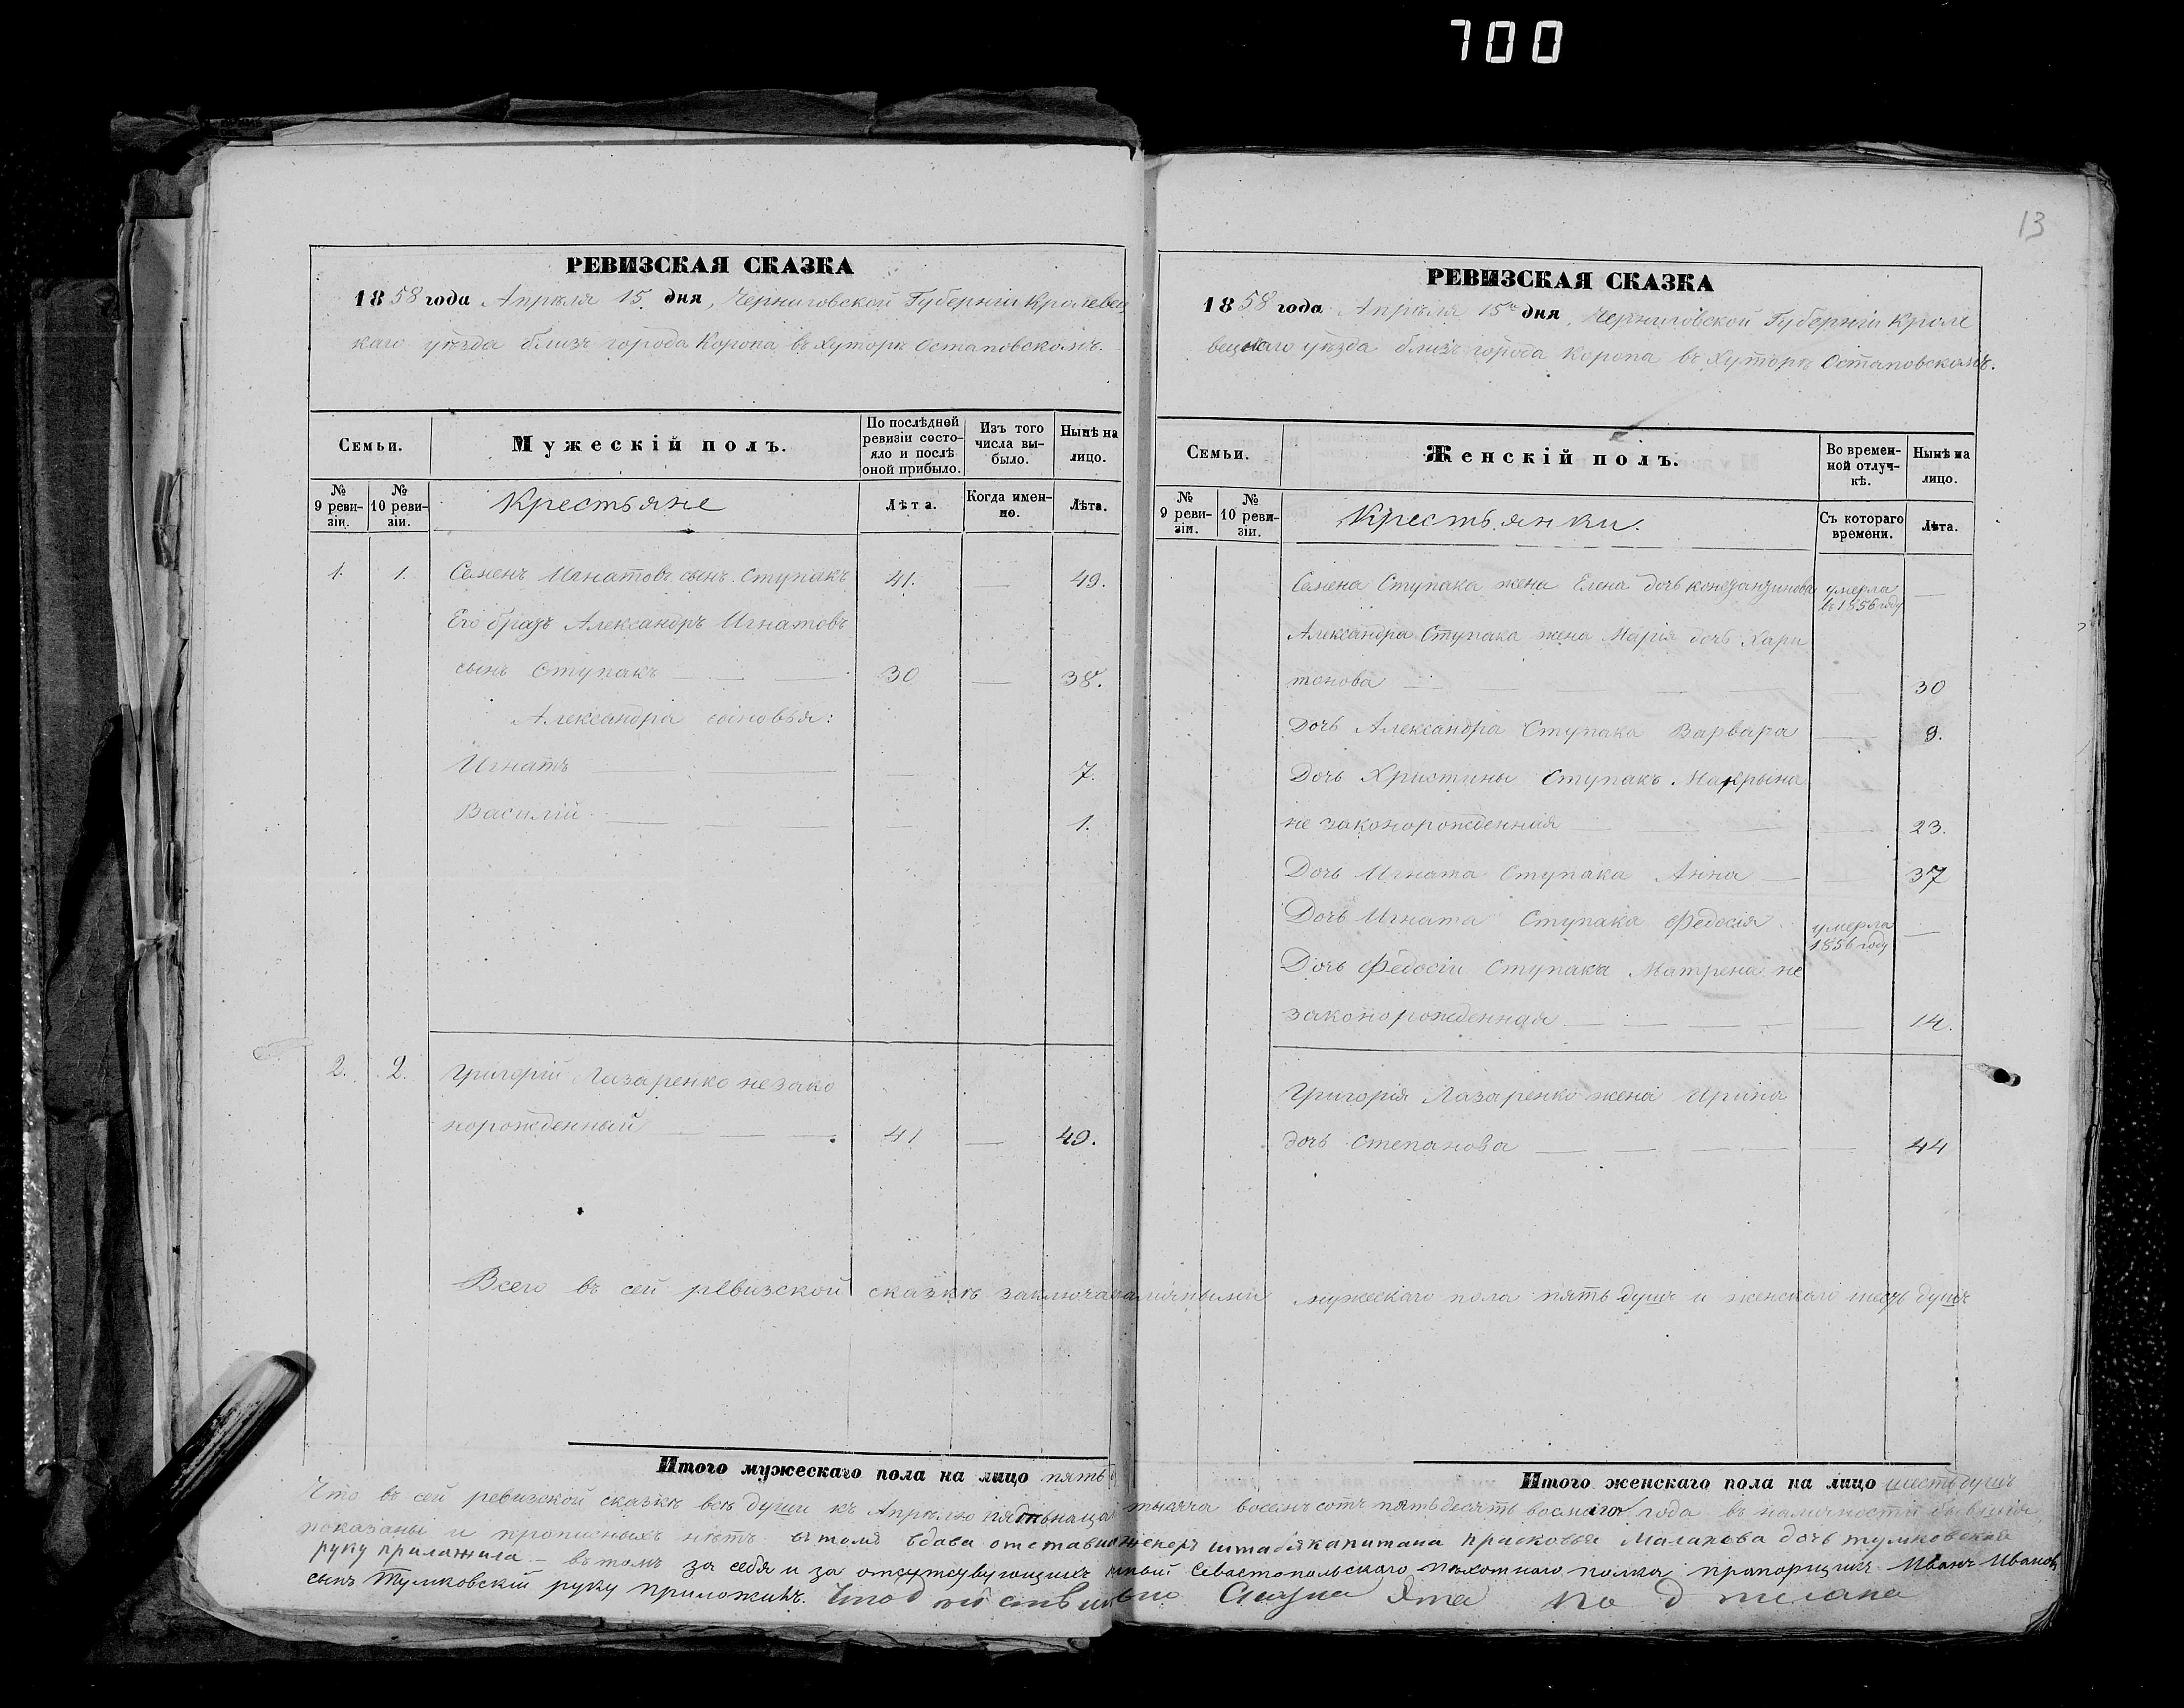 700
13
РЕВИЗСКАЯ СКАЗКА
1858 года Апрѣля 15 дня, Черниговской Губерніи Кролевец
каго уѣзда близъ города Коропа въ Хуторѣ Остаповскомъ.
Семьи.
Мужескій полъ.
По послѣдней ревизіи состо-
яло и послѣ оной прибыло.
Изъ того числа вы-
было.
Нынѣ на лицо.
№ 9 реви-
зіи.
№ 10 реви-
зіи.
Крестьяне
Лѣта.
Когда имен-
но.
Лѣта.
1. 1. Семенъ Игнатовъ сынъ Ступакъ 41. — 49.
Его братъ Александръ Игнатовъ
сынъ Ступакъ — 30 — 38.
Александра сыновья:
Игнатъ — — 7.
Василій — — 1.
2. 2. Григорій Лазаренко незако
норожденный — 41 — 49.
Всего въ сей ревизской сказкѣ
Итого мужескаго пола на лицо пять
РЕВИЗСКАЯ СКАЗКА
1858 года Апрѣля 15го дня, Черниговской Губерніи Кроле
вецкаго уѣзда близъ города Коропа въ Хуторѣ Остаповскомъ.
Семьи.
Женскій полъ.
Во времен-
ной отлуч-
кѣ.
Нынѣ на лицо.
№ 9 реви-
зіи.
№ 10 реви-
зіи.
Крестьянки.
Съ котораго времени.
Лѣта.
Семена Ступака жена Елена дочь умерла въ 1856 году —
Александра Ступака жена Марія дочь Хари
тонова — 30
Дочь Александра Ступака Варвара — 9.
Дочь Христины Ступакъ Макрына
не законорожденная — — 23.
Дочь Игната Ступака Анна — — 37
Дочь Игната Ступака Федосія умерла 1856 году —
Дочь Федосіи Ступака Матрена не
законорожденная — — 14.
Григорія Лазаренко жена Ирина
дочь Степанова — — 44
мужескаго пола пять душъ и женскаго шесть душъ
Итого женскаго пола на лицо шесть душъ
Что въ сей ревизской сказкѣ всѣ души къ Апрѣлю тысяча восемсотъ пятьдесятъ восмаго года въ наличности бывшіе
показаны и прописныхъ нѣтъ въ томъ вдава штабскапитана Прасковья Малахова дочь Тумковская
руку приложила — въ томъ за себя и за отсутсвующихъ Севастопольскаго пѣхотнаго полка прапорщикъ Иванъ Ивановъ
сынъ Тумковскій руку приложилъ.